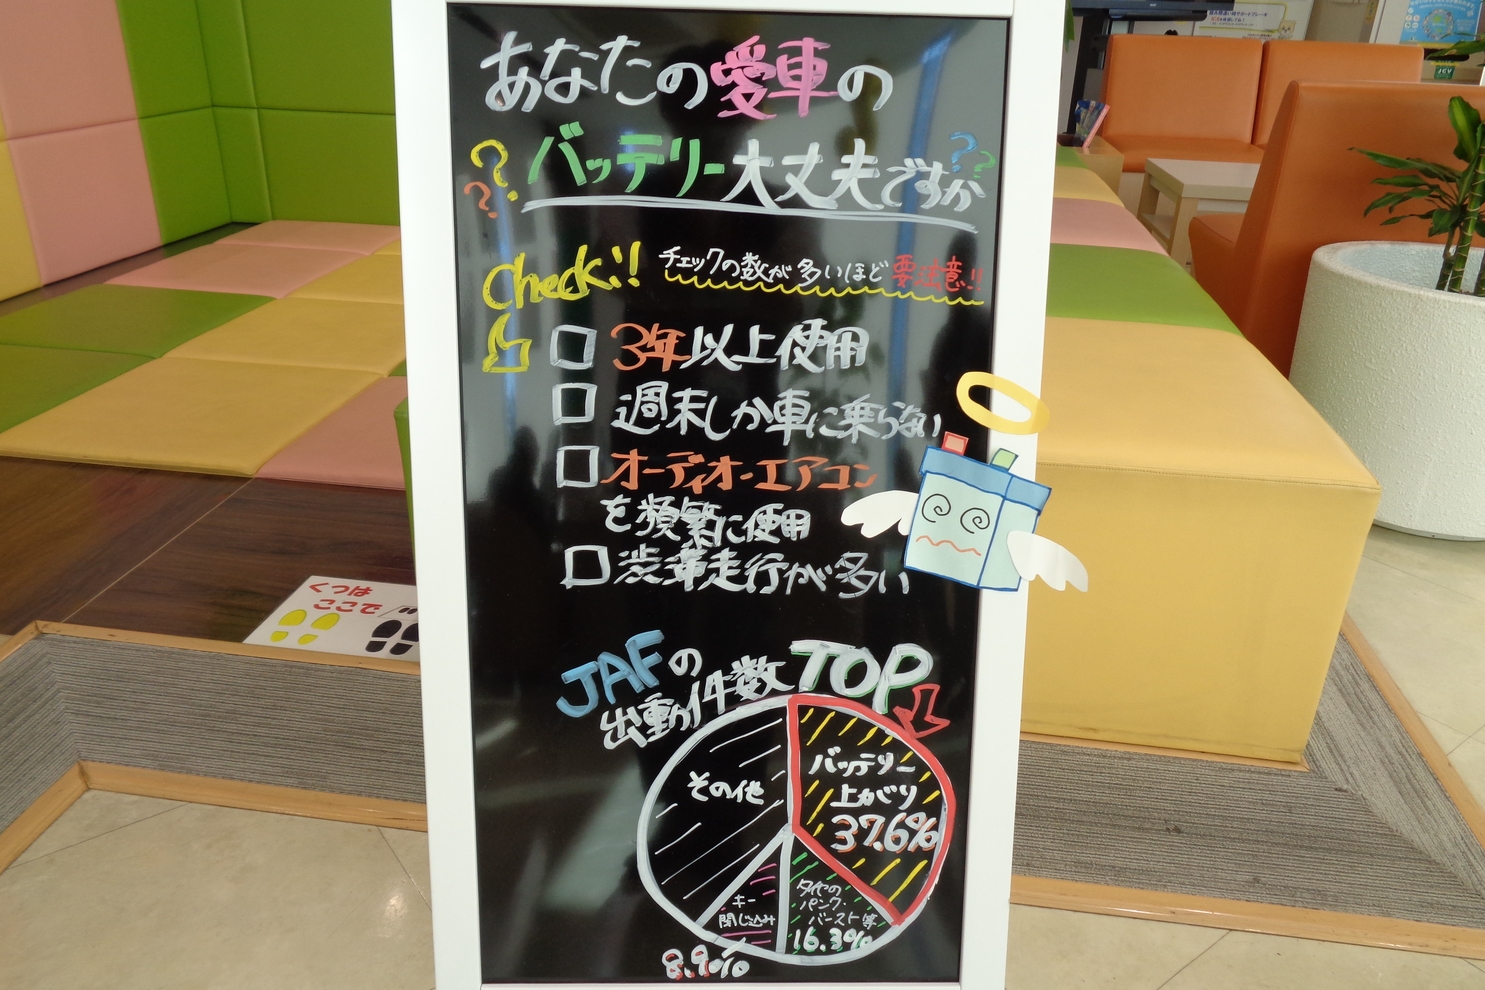 あなたの愛車の
??バッテリー大丈夫ですか??
Check!!
チェックの数が多いほど要注意!!
□ 3年以上使用
□ 週末しか車に乗らない
□ オーディオ・エアコン
を頻繁に使用
□ 渋滞走行が多い
JAFの
出動件数TOP
バッテリー
上がり
37.6%
その他
タイヤの
パンク・
バースト等
16.3%
キー
閉じ込み
8.9%
くつは
ここで